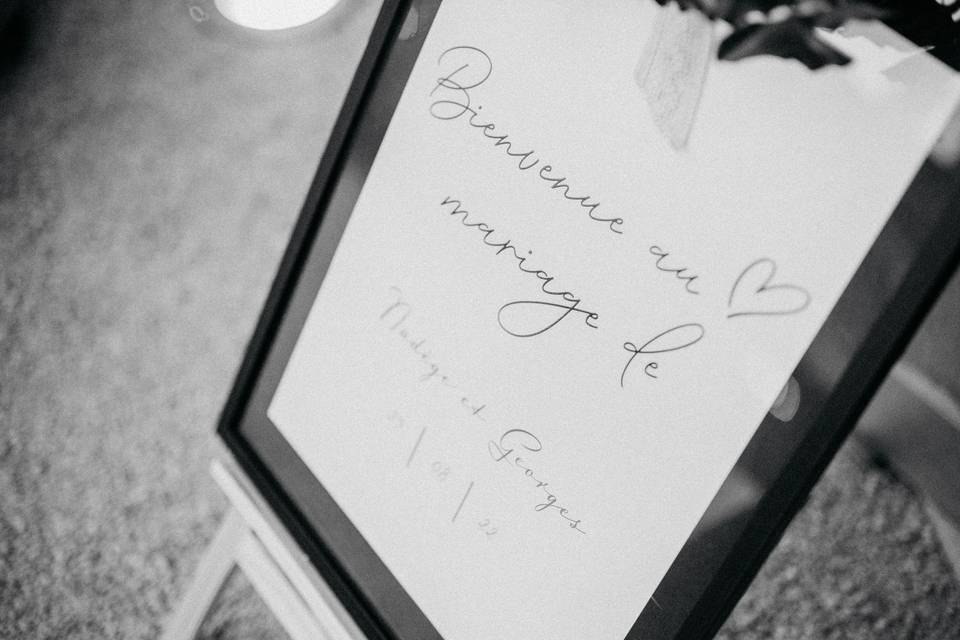 Bienvenue au
mariage de
Nadège et Georges
/ 08 / 22